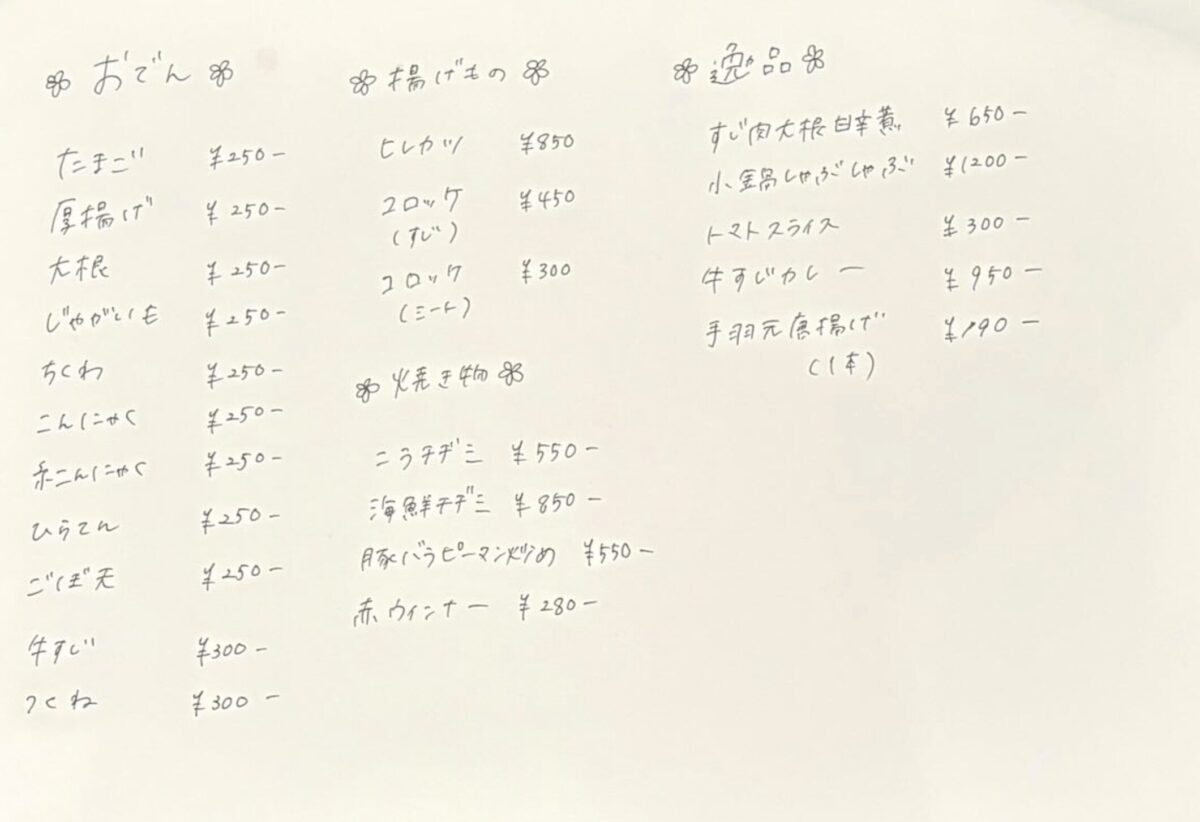 おでん
たまご ¥250-
厚揚げ ¥250-
大根 ¥250-
じゃがいも ¥250-
ちくわ ¥250-
こんにゃく ¥250-
糸こんにゃく ¥250-
ひらてん ¥250-
ごぼ天 ¥250-
牛すじ ¥300-
つくね ¥300-
揚げもの
ヒレカツ ¥850
コロッケ ¥450
(すじ)
コロッケ ¥300
(ミート)
焼き物
ニラチヂミ ¥550-
海鮮チヂミ ¥850-
豚バラピーマン炒め ¥550-
赤ウィンナー ¥280-
逸品
すじ肉大根甘辛煮 ¥650-
小鍋しゃぶしゃぶ ¥1200-
トマトスライス ¥300-
牛すじカレー ¥950-
手羽元唐揚げ ¥190-
(1本)